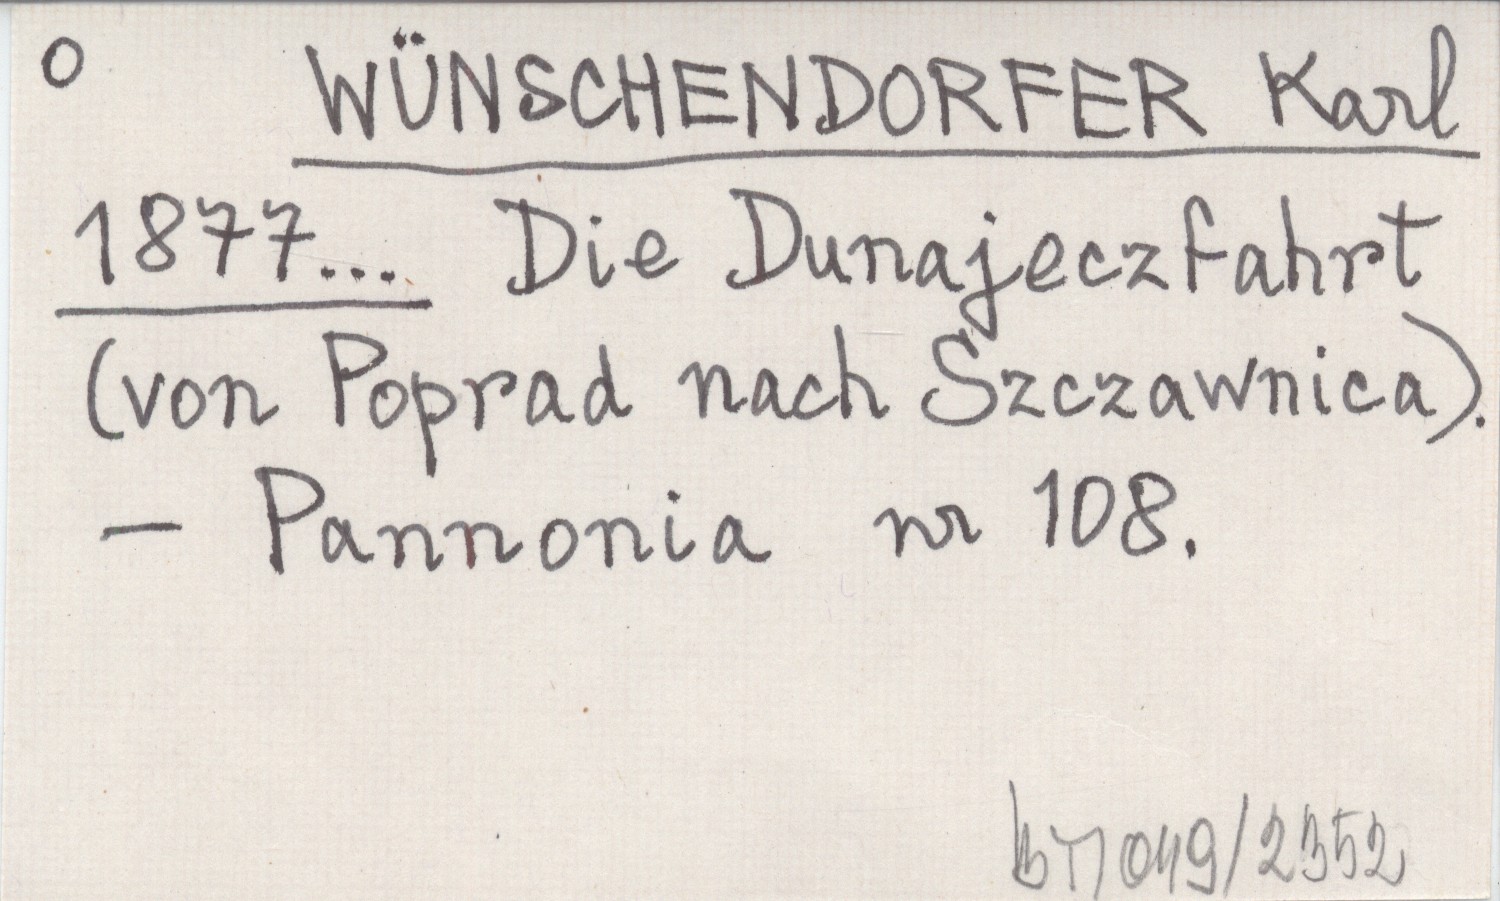 O WÜNSCHENDORFER Karl
1877... Die Dunajeczfahrt
(von Poprad nach Szczawnica).
- Pannonia nr 108.
BM 049/2352